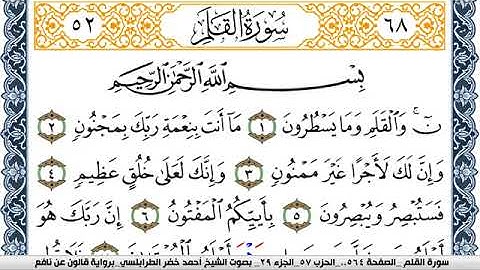 ٦٨ سُورَةُ القَلَمِ ٥٢
بِسْمِ اللَّهِ الرَّحْمَٰنِ الرَّحِيمِ
نٓۚ وَالْقَلَمِ وَمَا يَسْطُرُونَ ١ مَا أَنتَ بِنِعْمَةِ رَبِّكَ بِمَجْنُونٍ ٢
وَإِنَّ لَكَ لَأَجْرًا غَيْرَ مَمْنُونٍ ٣ وَإِنَّكَ لَعَلَىٰ خُلُقٍ عَظِيمٍ ٤
فَسَتُبْصِرُ وَيُبْصِرُونَ ٥ بِأَييِّكُمُ الْمَفْتُونُ ٦ إِنَّ رَبَّكَ هُوَ
سورة القلم _الصفحة ٥٦٤.. الحزب ٥٧_الجزء ٢٩_ بصوت الشيخ أحمد خضر الطرابلسي .برواية قالون عن نافع